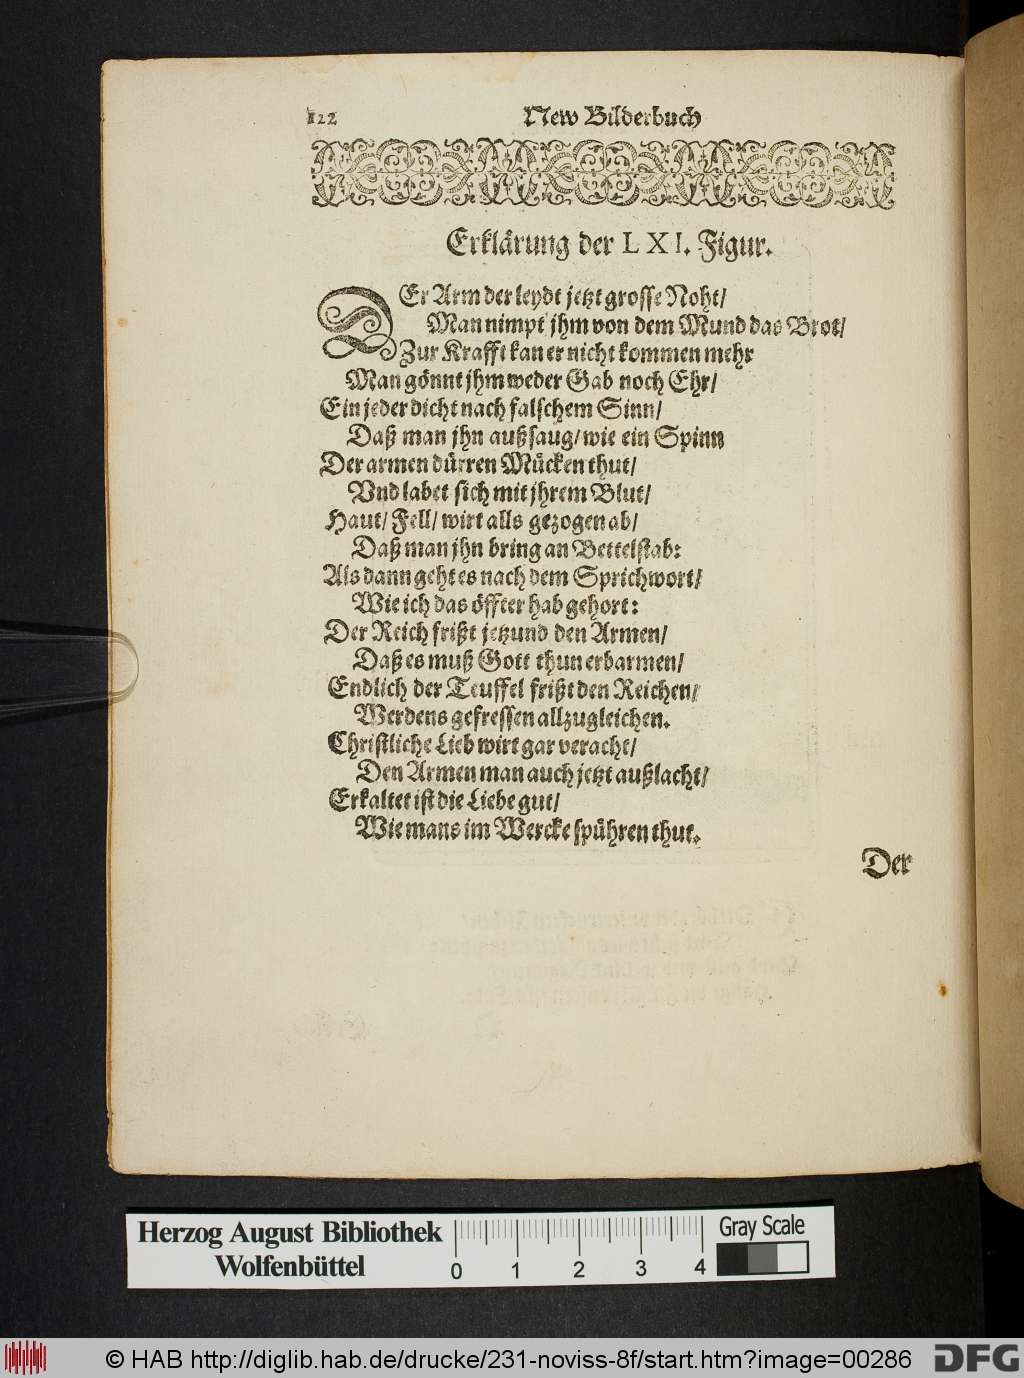 122 New Bilderbuch
Erklärung der LXI. Figur.
DEr Arm der leydt jetzt grosse Noht/
Man nimpt jhm von dem Mund das Brot/
Zur Krafft kan er nicht kommen mehr
Man gönnt jhm weder Gab noch Ehr/
Ein jeder dicht nach falschem Sinn/
Daß man jhn außsaug/ wie ein Spinn
Der armen dürren Mücken thut/
Vnd labet sich mit jhrem Blut/
Haut/ Fell/ wirt alls gezogen ab/
Daß man jhn bring an Bettelstab:
Als dann geht es nach dem Sprichwort/
Wie ich das öffter hab gehort:
Der Reich frißt jetzund den Armen/
Daß es muß Gott thun erbarmen/
Endlich der Teuffel frißt den Reichen/
Werdens gefressen allzugleichen.
Christliche Lieb wirt gar veracht/
Den Armen man auch jetzt außlacht/
Erkaltet ist die Liebe gut/
Wie mans im Wercke spühren thut.
Der
Herzog August Bibliothek
Wolfenbüttel
0 1 2 3 4
Gray Scale
© HAB http://diglib.hab.de/drucke/231-noviss-8f/start.htm?image=00286
DFG